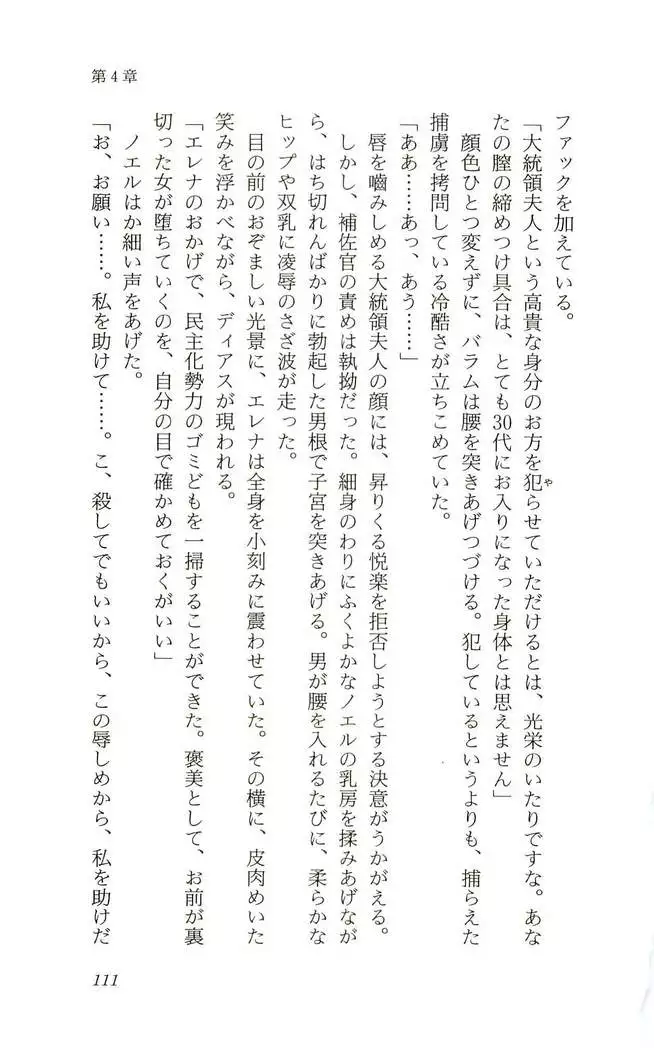 第4章
ファックを加えている。
「大統領夫人という高貴な身分のお方を犯らせていただけるとは、光栄のいたりですな。あな
たの膣の締めつけ具合は、とても30代にお入りになった身体とは思えません」
顔色ひとつ変えずに、バラムは腰を突きあげつづける。犯しているというよりも、捕らえた
捕虜を拷問している冷酷さが立ちこめていた。
「ああ……あっ、あう……」
唇を嚙みしめる大統領夫人の顔には、昇りくる悦楽を拒否しようとする決意がうかがえる。
しかし、補佐官の責めは執拗だった。細身のわりにふくよかなノエルの乳房を揉みあげなが
ら、はち切れんばかりに勃起した男根で子宮を突きあげる。男が腰を入れるたびに、柔らかな
ヒップや双乳に凌辱のさざ波が走った。
目の前のおぞましい光景に、エレナは全身を小刻みに震わせていた。その横に、皮肉めいた
笑みを浮かべながら、ディアスが現われる。
「エレナのおかげで、民主化勢力のゴミどもを一掃することができた。褒美として、お前が裏
切った女が堕ちていくのを、自分の目で確かめておくがいい」
ノエルはか細い声をあげた。
「お、お願い……。私を助けて……。こ、殺してでもいいから、この辱しめから、私を助けだ
111